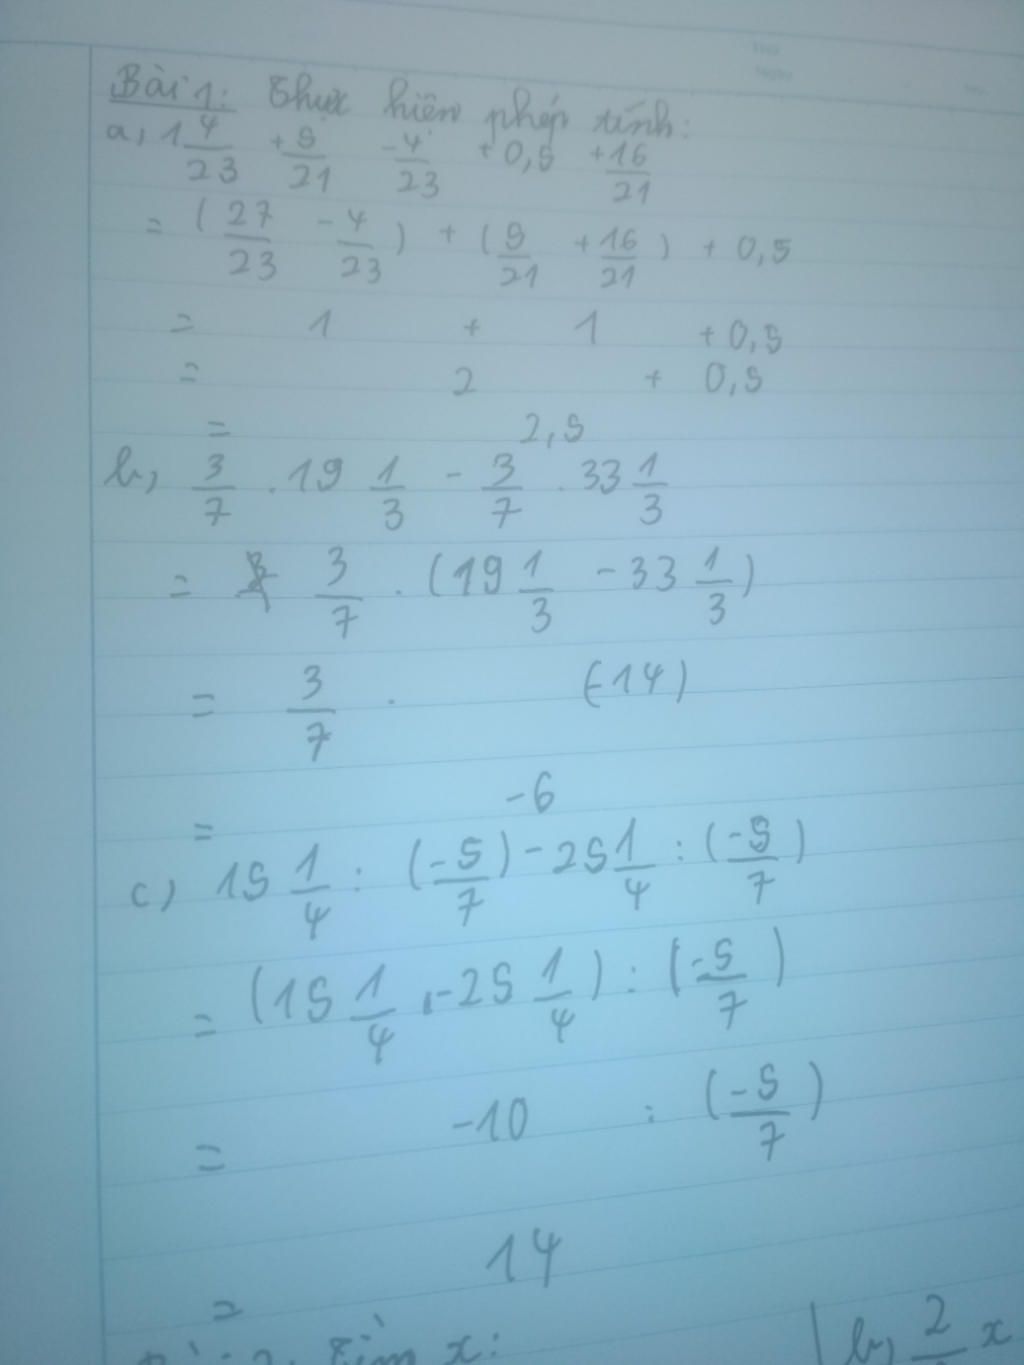 Bài 1: Thực hiện phép tính:
a, 1 4/23 + 5/21 - 4/23 + 0,5 + 16/21
= (27/23 - 4/23) + (5/21 + 16/21) + 0,5
= 1 + 1 + 0,5
= 2 + 0,5
= 2,5
b, 3/7 . 19 1/3 - 3/7 . 33 1/3
= 3/7 . (19 1/3 - 33 1/3)
= 3/7 . (-14)
= -6
c) 15 1/4 : (-5/7) - 25 1/4 : (-5/7)
= (15 1/4 - 25 1/4) : (-5/7)
= -10 : (-5/7)
= 14
Bài 2: Tìm x:
b, 2 x